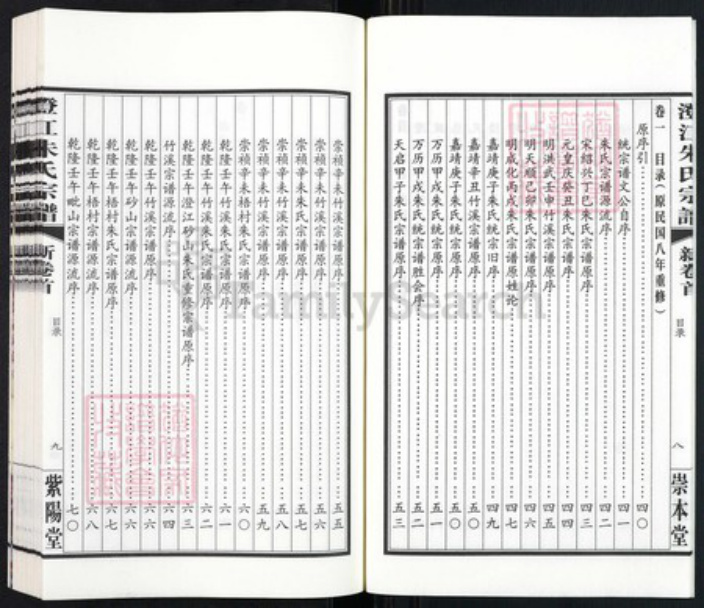 澄江朱氏宗譜
新卷首
目录
八
崇本堂
卷一 目录(原民国八年重修)
原序引 四〇
統宗谱文公自序 四一
朱氏宗谱源流序 四二
宋绍兴丁巳朱氏宗谱原序 四三
元皇庆癸丑朱氏宗谱原序 四四
明洪武壬申竹溪宗谱原序 四五
明天顺己卯朱氏宗谱原序 四六
明成化丙戌朱氏宗谱原姓论 四七
嘉靖庚子朱氏統宗旧序 四九
嘉靖辛丑竹溪宗谱原序 五〇
嘉靖庚子朱氏統宗原序 五〇
万历甲戌朱氏統宗原序 五一
万历甲戌朱氏宗谱胜会序 五二
天启甲子朱氏宗谱原序 五三
崇祯辛未 五五
崇祯辛未 五六
崇祯辛未 五七
崇祯辛未 五八
崇祯辛未 五九
崇祯辛未梧村朱氏宗谱原序 六〇
乾隆壬午竹溪朱氏宗谱原序 六一
乾隆壬午竹溪朱氏宗谱原序 六二
乾隆壬午澄江砂山朱氏重修宗谱原序 六三
竹溪宗谱源流序 六四
乾隆壬午竹溪宗谱源流序 六六
乾隆壬午砂山宗谱源流序 六六
乾隆壬午梧村朱氏宗谱原序 六七
乾隆壬午梧村宗谱源流序 六八
乾隆壬午毗山宗谱源流序 七〇
澄江朱氏宗譜
新卷首
目录
九
紫陽堂
FamilySearch